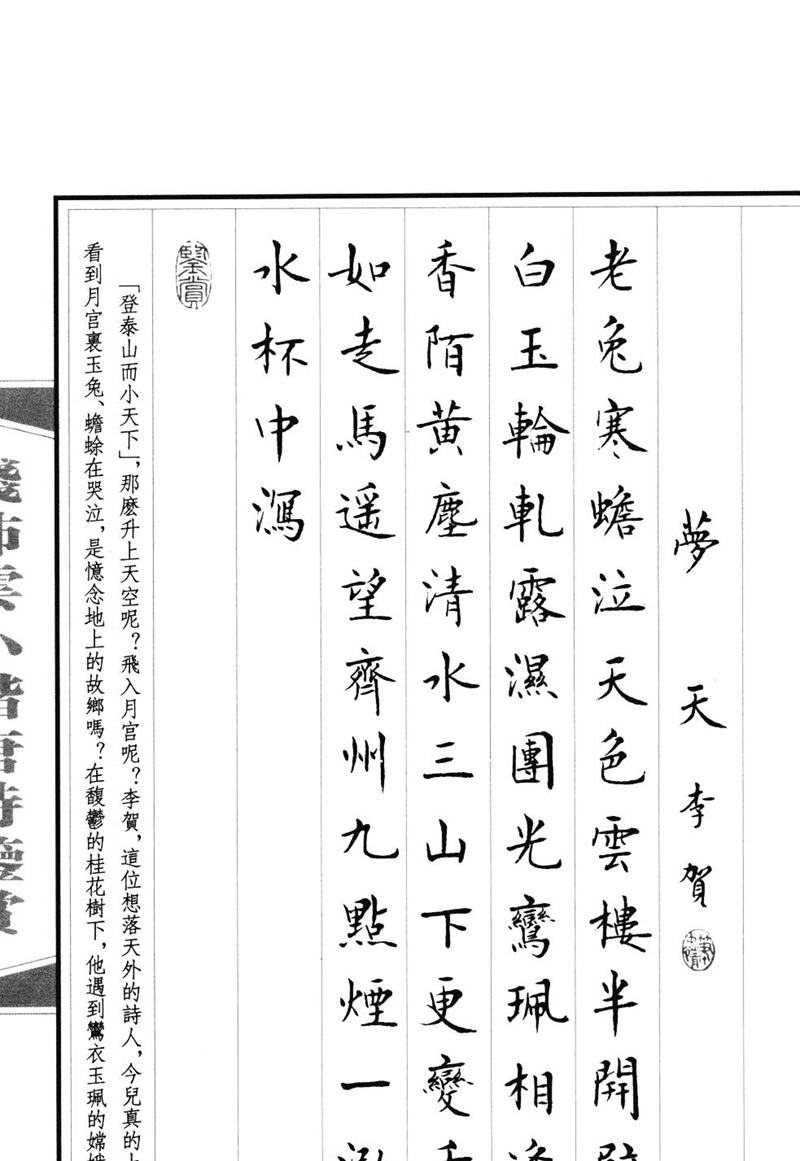 夢　天　李賀
老兔寒蟾泣天色雲樓半開
白玉輪軋露濕團光鸞珮相
香陌黃塵清水三山下更變
如走馬遥望齊州九點煙一
水杯中瀉
鑒賞
「登泰山而小天下」，那麽升上天空呢？飛入月宫呢？李賀，這位想落天外的詩人，今兒真的
看到月宫裏玉兔、蟾蜍在哭泣，是憶念地上的故鄉嗎？在馥鬱的桂花樹下，他遇到鸞衣玉珮的嫦